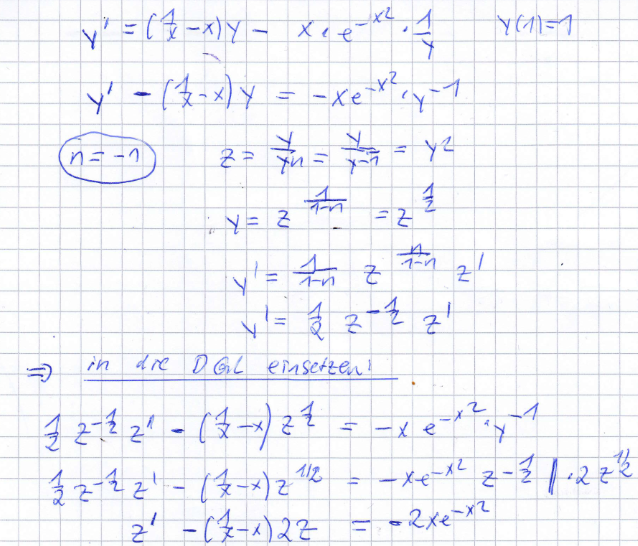 y' = (1/x - x)y - x · e^{-x²} · 1/y    y(1)=1
y' - (1/x - x)y = -xe^{-x²} · y^{-1}
n = -1    z = y/yⁿ = y/y^{-1} = y²
y = z^{1/(1-n)} = z^{1/2}
y' = 1/(1-n) z^{n/(1-n)} z'
y' = 1/2 z^{-1/2} z'
⇒ in die DGL einsetzen:
1/2 z^{-1/2} z' - (1/x - x) z^{1/2} = -x e^{-x²} · y^{-1}
1/2 z^{-1/2} z' - (1/x - x) z^{1/2} = -xe^{-x²} z^{-1/2} | · 2 z^{1/2}
z' - (1/x - x) 2z = -2xe^{-x²}